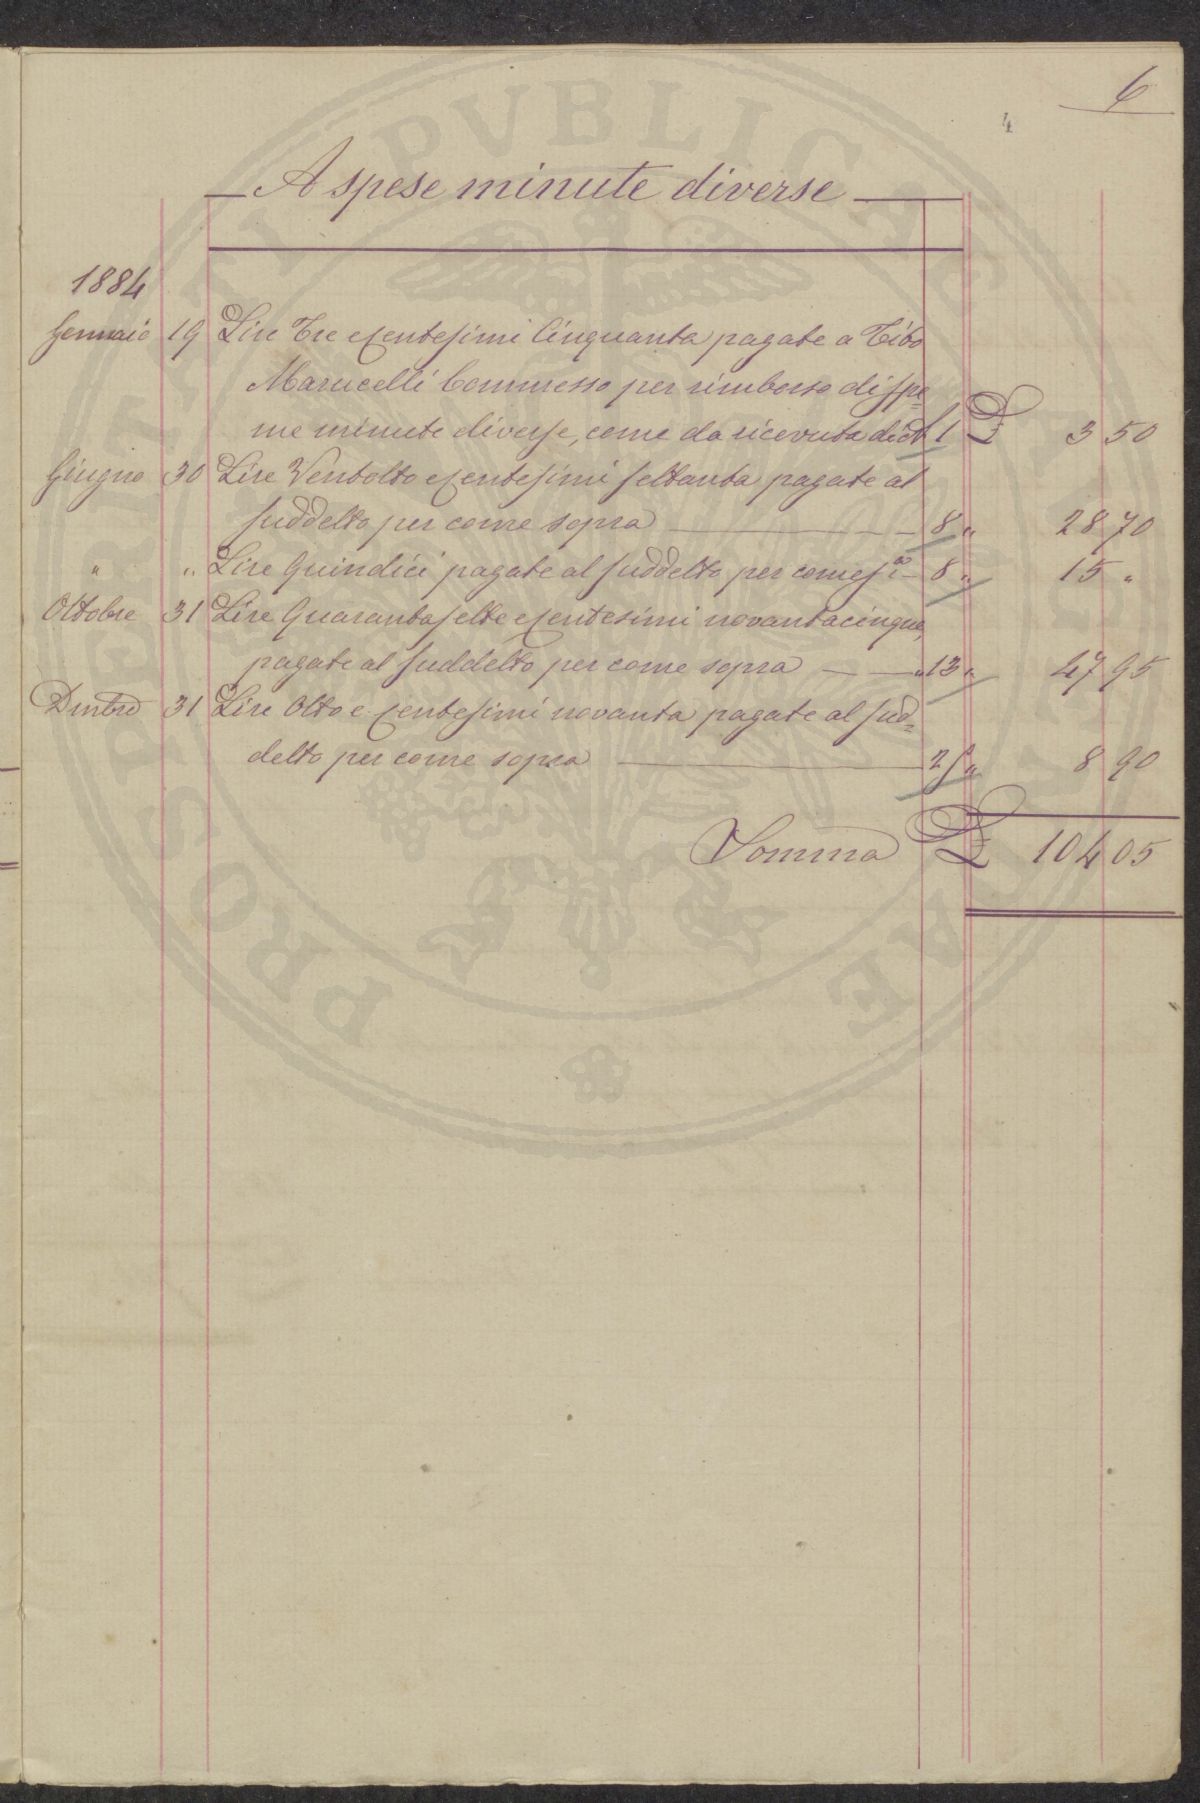 6
4
A spese minute diverse
1884
Gennaio 19 Lire Tre e centesimi Cinquanta pagate a Tito
Marucelli Commesso per rimborso di spe-
me minute diverse, come da ricevuta di N 1 £ 3 50
Giugno 30 Lire Ventotto e centesimi settanta pagate al
suddetto per come sopra 8 " 28 70
" " Lire Quindici pagate al suddetto per come sa 8 " 15 "
Ottobre 31 Lire Quarantasette e centesimi novantacinque,
pagate al suddetto per come sopra " 13 " 47 95
Dmbre 31 Lire Otto e centesimi novanta pagate al sud=
detto per come sopra 25 " 8 90
Somma £ 104 05
PROSPERITATI PVBLICAE